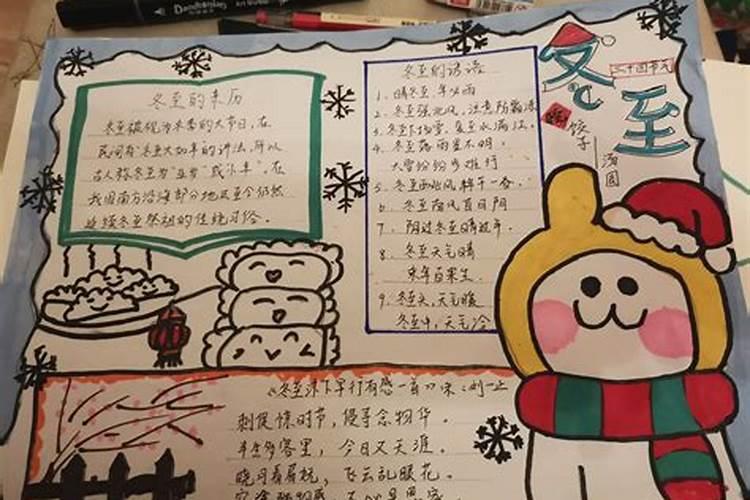 冬至
二十四节气
吃
饺子
汤圆
冬至的来历
冬至被视为冬季的大节日,在
民间有“冬至大如年”的讲法,所以
古人称冬至为“亚岁”或“小年”。在
我国南方沿海部分地区至今仍然
延续冬至祭祖的传统习俗。
冬至的谚语
1、晴冬至,年必雨
2、冬至强北风,注意防霜冻
3、冬至下场雪,夏至水满江。
4、冬至
大雪纷纷步难行
5、冬至西北风
6、冬至南风百日阴
7、阴过冬至晴过年。
8、冬至天气晴
来年百果生。
9、冬至头,天气暖
冬至中,天气冷
《冬至床下早行有感一首》宋:刘一止
刺促惊时节,侵寻念物华。
半生多客里,今日又天涯。
晓月看屋枕,飞云乱眼花。